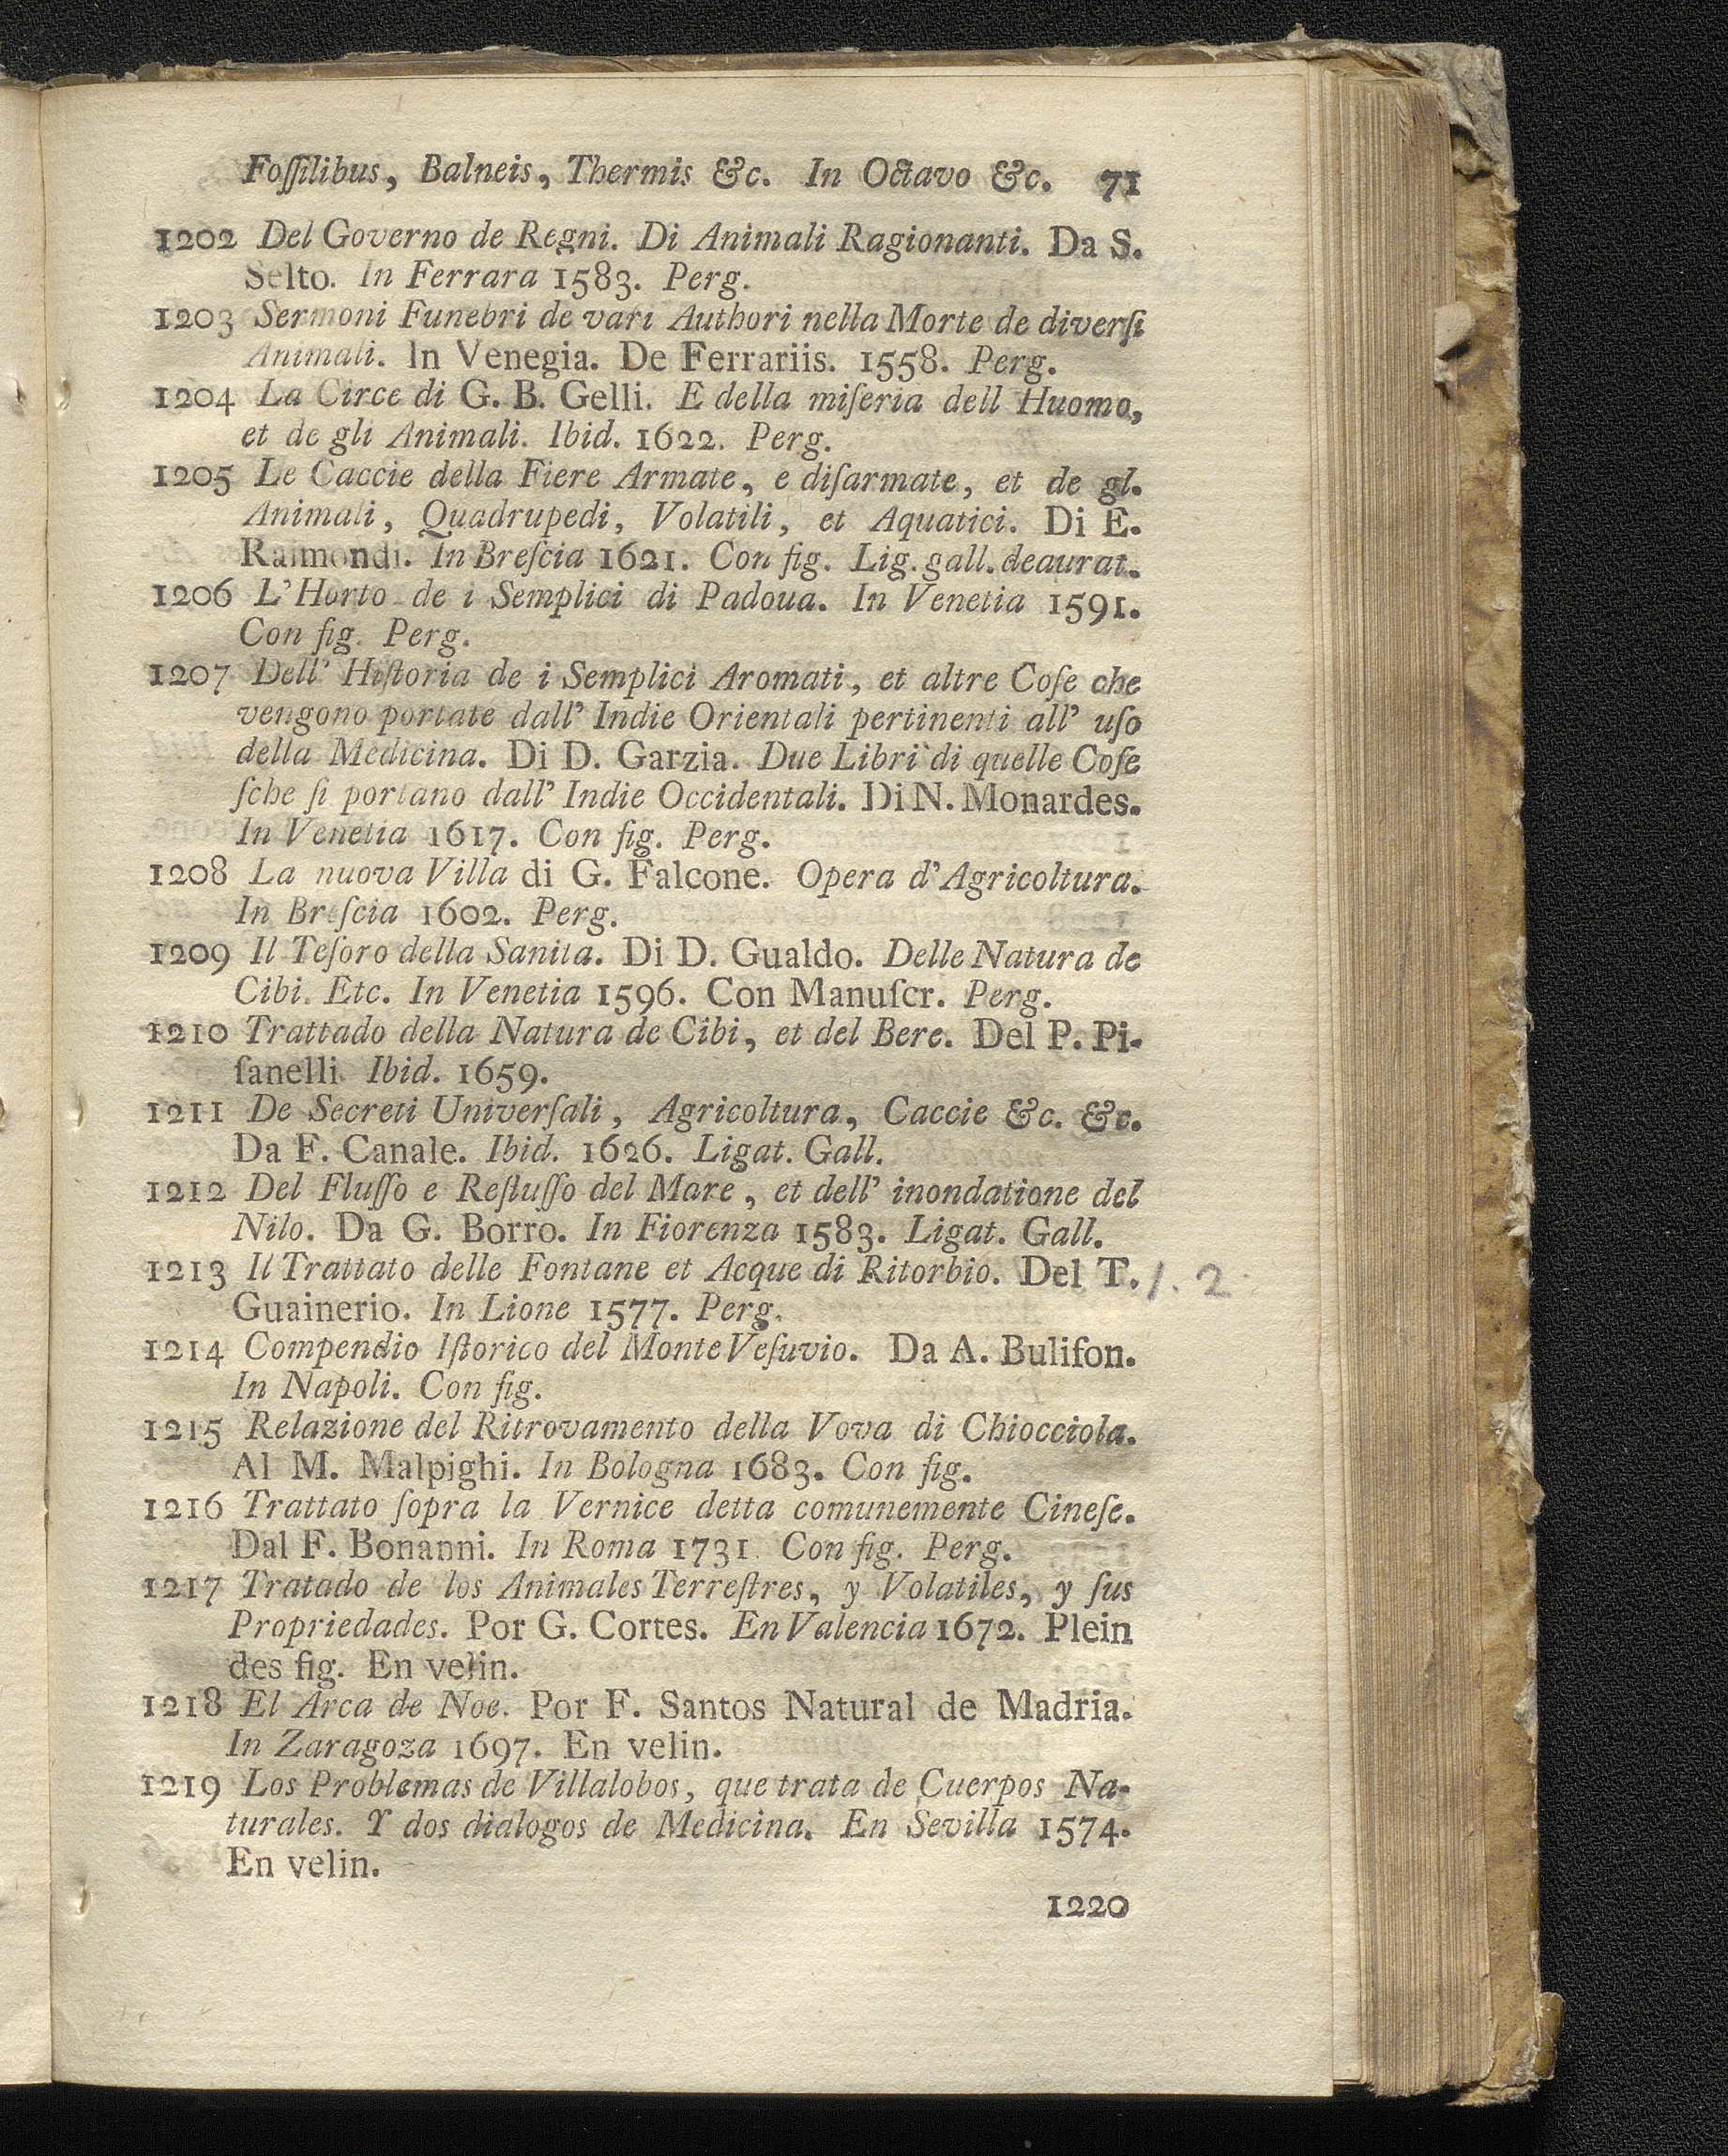 Foſſilibus, Balneis, Thermis &c. In Octavo &c. 71
1202 Del Governo de Regni. Di Animali Ragionanti. Da S.
Selto. In Ferrara 1583. Perg.
1203 Sermoni Funebri de vari Authori nella Morte de diverſi
Animali. In Venegia. De Ferrariis. 1558. Perg.
1204 La Circe di G. B. Gelli. E della miſeria dell Huomo,
et de gli Animali. Ibid. 1622. Perg.
1205 Le Caccie della Fiere Armate, e diſarmate, et de gl.
Animali, Quadrupedi, Volatili, et Aquatici. Di E.
Raimondi. In Breſcia 1621. Con fig. Lig. gall. deaurat.
1206 L'Horto de i Semplici di Padoua. In Venetia 1591.
Con fig. Perg.
1207 Dell' Hiſtoria de i Semplici Aromati, et altre Coſe che
vengono portate dall' Indie Orientali pertinenti all' uſo
della Medicina. Di D. Garzia. Due Libri di quelle Coſe
ſche ſi portano dall' Indie Occidentali. Di N. Monardes.
In Venetia 1617. Con fig. Perg.
1208 La nuova Villa di G. Falcone. Opera d'Agricoltura.
In Breſcia 1602. Perg.
1209 Il Teſoro della Sanita. Di D. Gualdo. Delle Natura de
Cibi. Etc. In Venetia 1596. Con Manuſcr. Perg.
1210 Trattado della Natura de Cibi, et del Bere. Del P. Pi-
ſanelli. Ibid. 1659.
1211 De Secreti Univerſali, Agricoltura, Caccie &c. &c.
Da F. Canale. Ibid. 1626. Ligat. Gall.
1212 Del Fluſſo e Reſluſſo del Mare, et dell' inondatione del
Nilo. Da G. Borro. In Fiorenza 1583. Ligat. Gall.
1213 Il Trattato delle Fontane et Acque di Ritorbio. Del T. 1. 2
Guainerio. In Lione 1577. Perg.
1214 Compendio Iſtorico del Monte Veſuvio. Da A. Bulifon.
In Napoli. Con fig.
1215 Relazione del Ritrovamento della Vova di Chiocciola.
Al M. Malpighi. In Bologna 1683. Con fig.
1216 Trattato ſopra la Vernice detta comunemente Cineſe.
Dal F. Bonanni. In Roma 1731. Con fig. Perg.
1217 Tratado de los Animales Terreſtres, y Volatiles, y ſus
Propriedades. Por G. Cortes. En Valencia 1672. Plein
des fig. En velin.
1218 El Arca de Noe. Por F. Santos Natural de Madria.
In Zaragoza 1697. En velin.
1219 Los Problemas de Villalobos, que trata de Cuerpos Na-
turales. Y dos dialogos de Medicina. En Sevilla 1574.
En velin.
1220